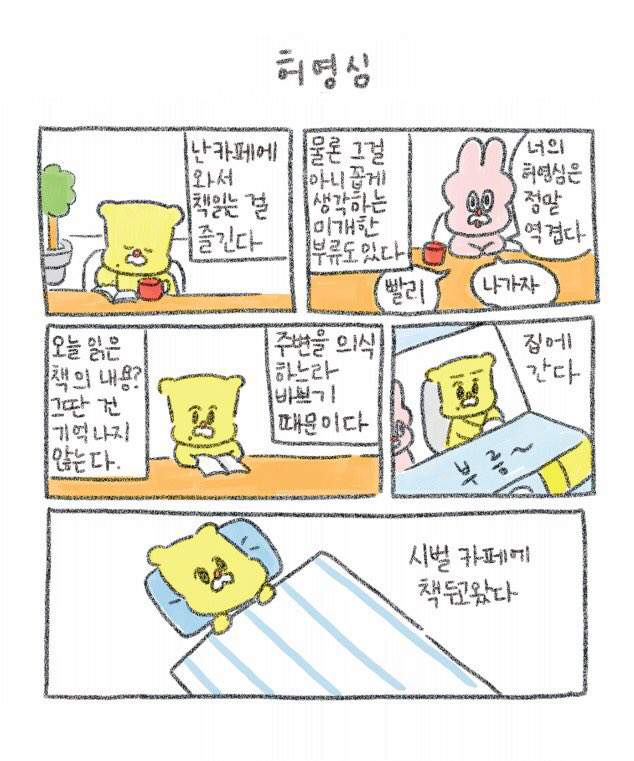 허영심
난 카페에
와서
책읽는 걸
즐긴다
물론 그걸
아니꼽게
생각하는
미개한
부류도 있다
너의
허영심은
정말
역겹다
빨리
나가자
오늘 읽은
책의 내용?
그딴 건
기억나지
않는다.
주변을 의식
하느라
바쁘기
때문이다
집에
간다
부릉~
시벌 카페에
책두고왔다